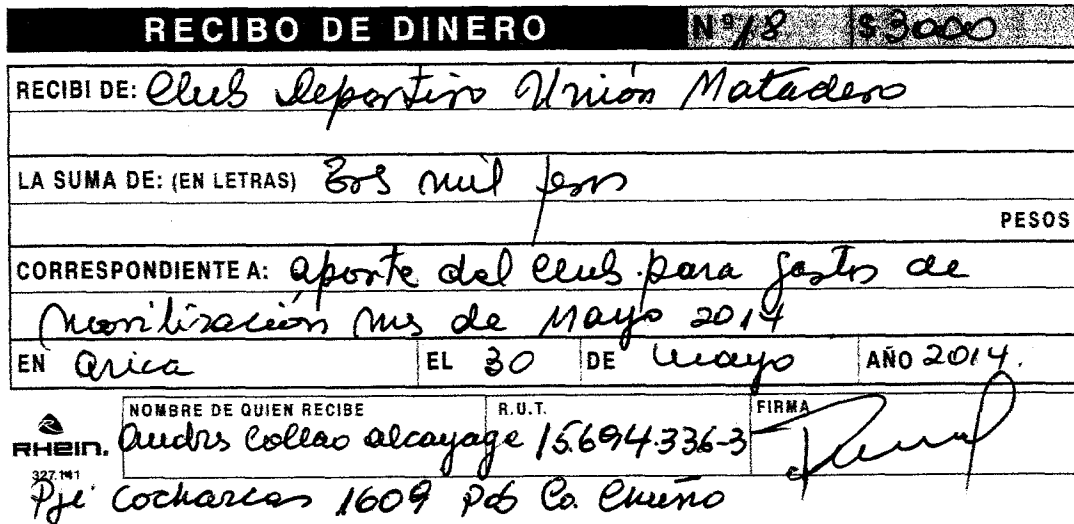 RECIBO DE DINERO Nº 18 $3000
RECIBI DE: Club Deportivo Unión Matadero
LA SUMA DE: (EN LETRAS) Tres mil pesos
PESOS
CORRESPONDIENTE A: aporte del club para gastos de
movilización mes de Mayo 2014
EN Arica EL 30 DE Mayo AÑO 2014.
NOMBRE DE QUIEN RECIBE R.U.T. FIRMA
RHEIN. Andres Collao Alcayage 15.694.336-3
327.141
Pje Cocharcas 1609 Pob Co. Chuño